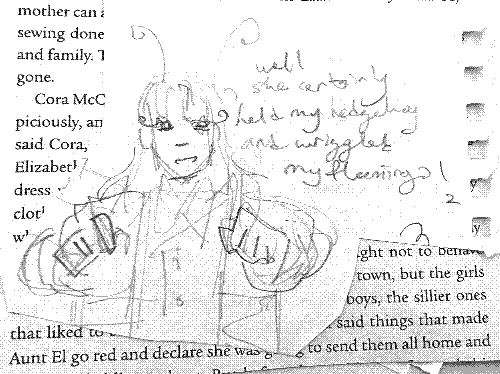 mother can
sewing done
and family.
gone.
Cora McC
piciously, an
said Cora,
Elizabeth
dress
clot
w
well
she certainly
held my hedgehog
and wriggled
my flamingo!
2
ght not to behave
town, but the girls
boys, the sillier ones
that liked to said things that made
Aunt El go red and declare she was to send them all home and